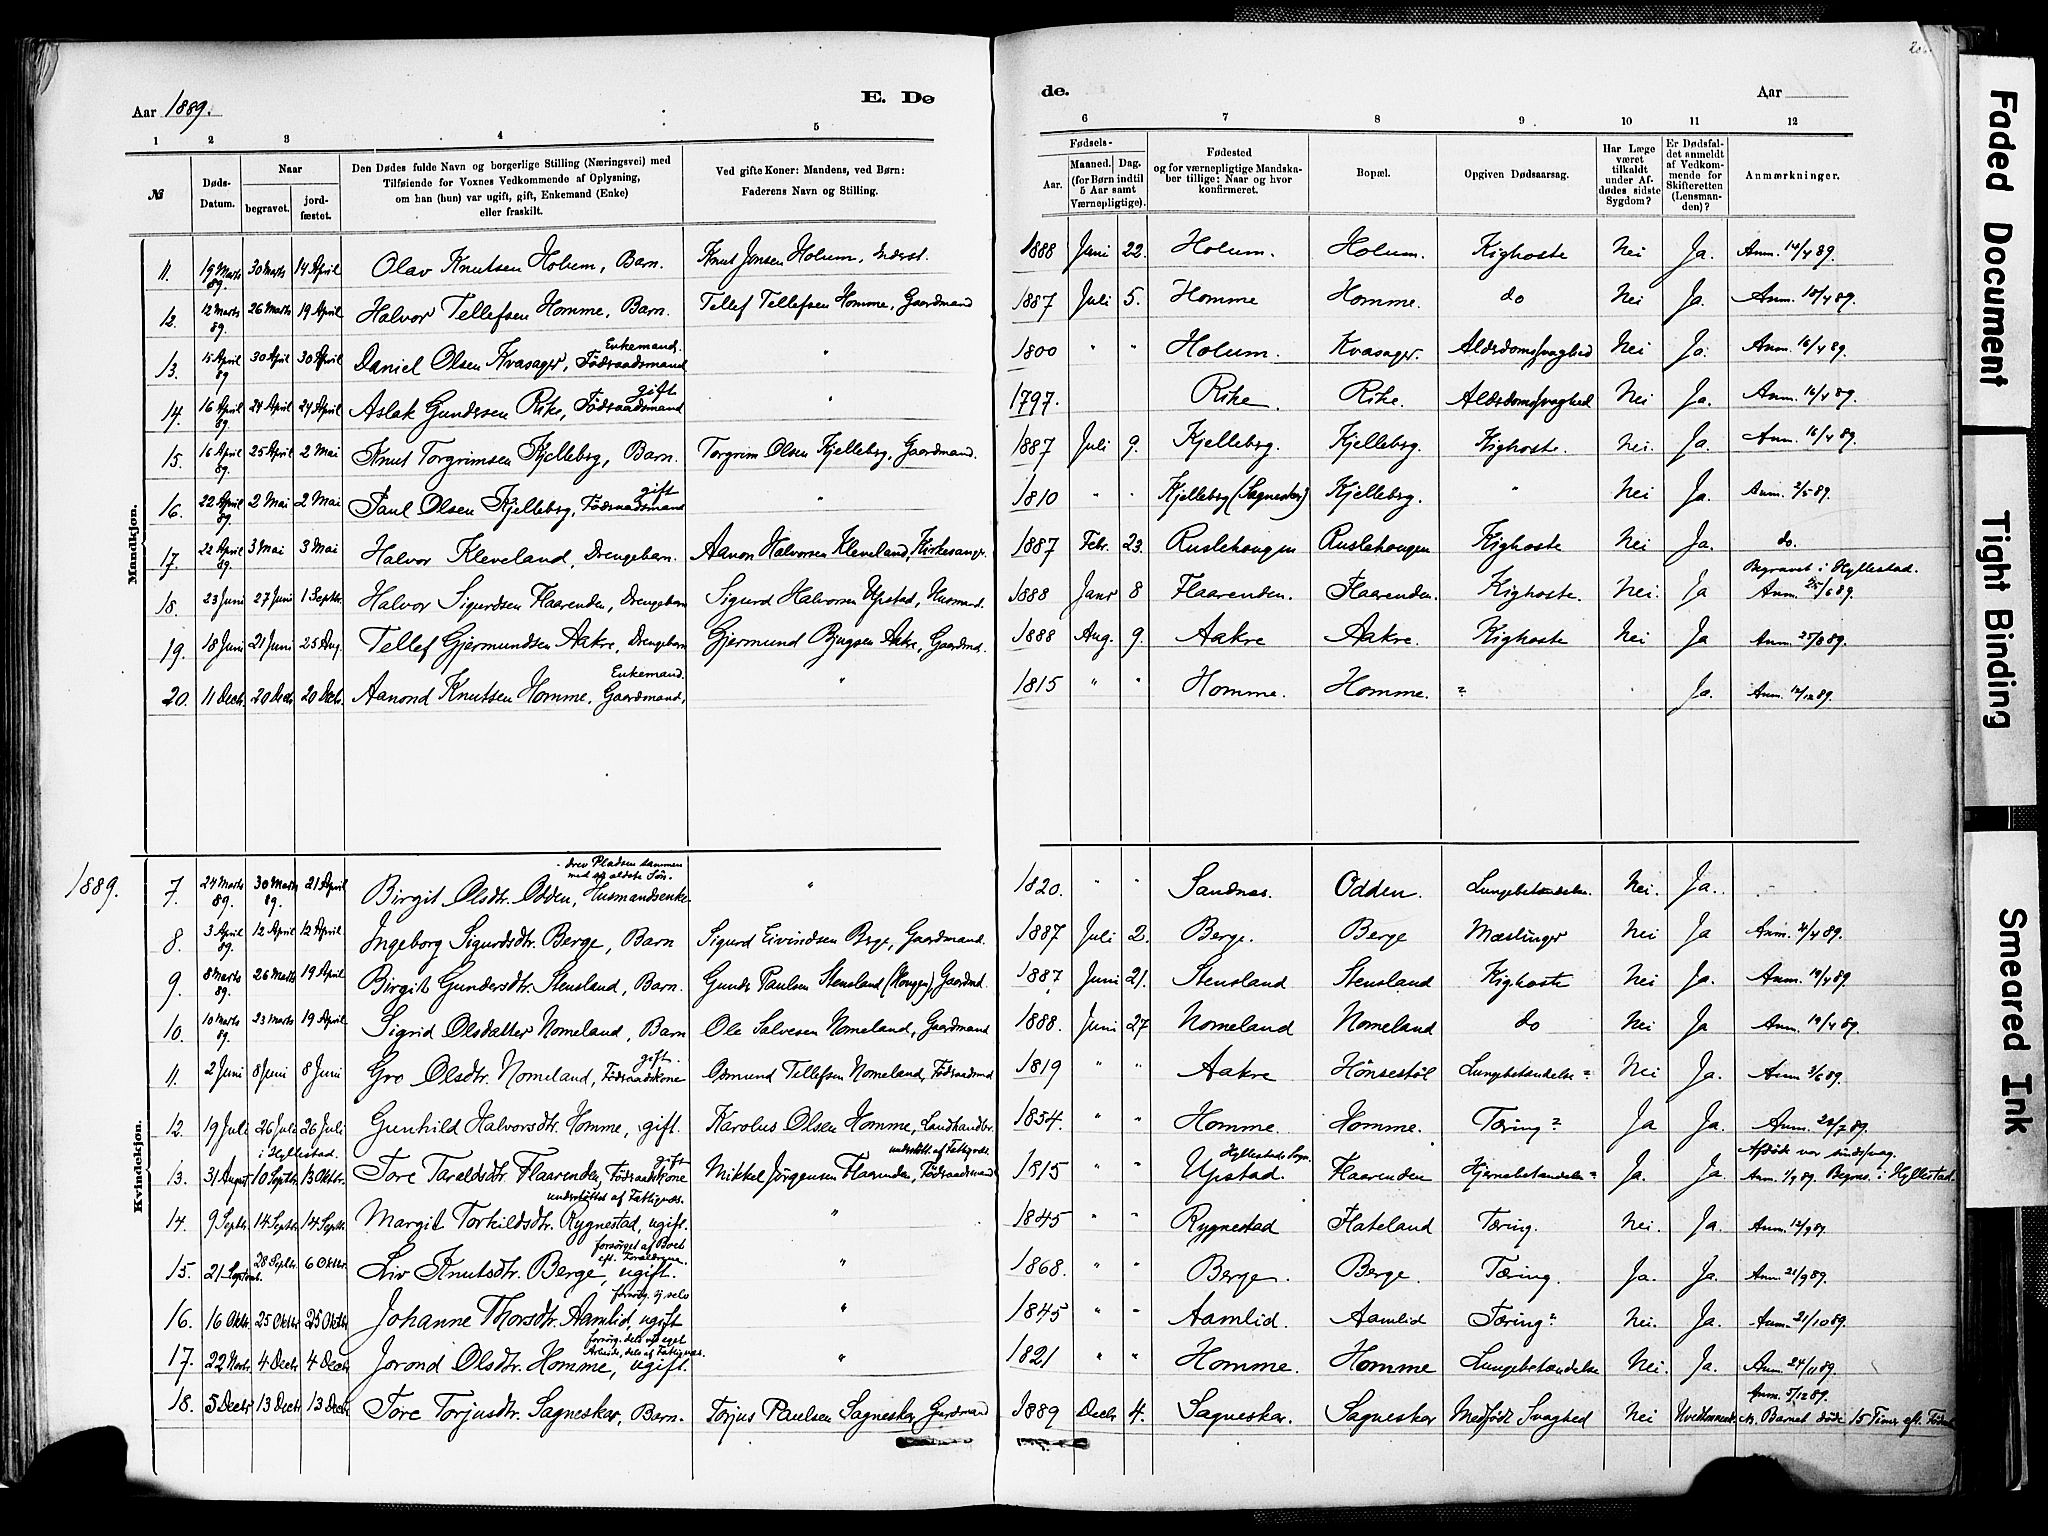 Aar 1889.
E. Dø
de.
Aar
1 2 3 4 5 6 7 8 9 10 11 12
№
Døds-Datum.
Naar
begravet.
jord-fæstet.
Den Dødes fulde Navn og borgerlige Stilling (Næringsvei) med
Tilføiende for Voxnes Vedkommende af Oplysning,
om han (hun) var ugift, gift, Enkemand (Enke)
eller fraskilt.
Ved gifte Koner: Mandens, ved Børn:
Faderens Navn og Stilling.
Fødsels-
Aar.
Maaned. Dag.
(for Børn indtil 5 Aar samt Værnepligtige).
Fødested
og for værnepligtige Mandska-
ber tillige: Naar og hvor
konfirmeret.
Bopæl.
Opgiven Dødsaarsag.
Har Læge været tilkaldt under Af-dødes sidste Sygdom?
Er Dødsfal-det anmeldt af Vedkom-mende for Skifteretten (Lensman-den)?
Anmærkninger.
Mandkjøn.
11. 19 Marts 89. 30 Marts 14 April Olav Knutsen Holum, Barn. Knut Jonsen Holum, 1888 Juni 22. Holum. Holum. Kighoste Nei Ja. Anm. 14/4 89.
12. 12 Marts 89. 26 Marts 19 April Halvor Tellefsen Homme, Barn. Tellef Tellefsen Homme, Gaardmand 1887 Juli 5. Homme Homme. do Nei Ja. Anm. 18/4 89.
Enkemand.
13. 15 April 89 30 April 30 April Daniel Olsen Kvasager, Födraadsmand " 1800 " " Holum. Kvasager. Alderdomssvaghed Nei Ja. Anm. 16/4 89.
gift
14. 16 April 89. 24 April 24 April Aslak Gundersen Rike, Födraadsmand " 1797. Rike. Rike. Alderdomssvaghed Nei Ja. Anm. 16/4 89.
15. 16 April 89 25 April 2 Mai Knut Torgrimsen Kjelleberg, Barn. Torgrim Olsen Kjelleberg, Gaardmand. 1887 Juli 9. Kjelleberg. Kjelleberg. Kighoste. Nei. Ja. Anm. 16/4 89.
gift
16. 22 April 89. 2 Mai 2 Mai Paul Olsen Kjelleberg, Födraadsmand " 1810 " " Kjelleberg (Sagneskar) Kjelleberg. " Nei Ja. Anm. 2/5 89.
17. 22 April 89. 3 Mai 3 Mai Halvor Kleveland, Drengebarn. Aanon Halvorsen Kleveland, Kirkesanger. 1887 Febr. 23. Ruslehougen Ruslehougen Kighoste Nei Ja. do.
Begravet i Hyllestad.
18. 23 Juni 27 Juni 1 Septbr. Halvor Sigurdsen Flaarenden, Drengebarn Sigurd Halvorsen Upstad, Husmand. 1888 Janr 8 Flaarenden. Flaarenden. Kighoste. Nei. Ja Anm. 25/6 89.
19. 18 Juni 21 Juni 25 Aug. Tellef Gjermundsen Aakre, Drengebarn Gjermund Bjugsen Aakre, Gaardmd. 1888 Aug. 9. Aakre Aakre. Kighoste Nei Ja Anm. 25/8 89.
Enkemand.
20. 11 Decbr. 20 Decbr 20 Decbr. Aanond Knutsen Homme, Gaardmand, " 1815 " " Homme. Homme. ? Ja. Anm. 12/12 89.
1889.
Kvindekjøn.
drev Pladsen sammen
med sin ældste Søn.
7. 24 Marts 89. 30 Marts 89. 21 April Birgit Olsdtr. Odden, Husmandsenke. " 1820. " " Sandnes. Odden. Lungebetændelse. Nei. Ja.
8. 3 April 89. 12 April 12 April Ingeborg Sigurdsdtr. Berge, Barn Sigurd Eivindsen Berge, Gaardmand. 1887 Juli 2. Berge. Berge Mæslinger Nei Ja Anm. 2/4 89.
9. 8 Marts 89. 26 Marts 19 April Birgit Gundersdtr. Stensland, Barn. Gunder Paulsen Stensland (Haugen), Gaardmd. 1887 Juni 21. Stensland Stensland Kighoste Nei Ja. Anm. 19/4 89.
10. 10 Marts 89. 23 Marts 19 April Sigrid Olsdatter Nomeland, Barn Ole Salvesen Nomeland, Gaardmand 1888. Juni 27 Nomeland Nomeland do Nei Ja Anm. 19/4 89.
gift.
11. 2 Juni 8 Juni 8 Juni Gro Olsdtr. Nomeland, Födraadskone Osmund Tellefsen Nomeland, Födraadsmd 1819 " " Aakre Hönsestöl Lungebetændelse? Nei Ja. Anm 3/6 89.
12. 19 Juli 26 Juli 26 Juli Gunhild Halvorsdtr. Homme, gift. Karolus Olsen Homme, Landhandler. 1854. " " Homme. Homme. Tæring? Ja Ja. Anm. 22/7 89.
i Hyllestad. gift understött. af Fattigvæs. Hyllestads Sogn. Afdöde var sindssvag.
13. 31 August 10 Septbr. 13 Oktbr. Tore Taraldsdtr. Flaarenden, Födraadskone Mikkel Jörgensen Flaarenden, Födraadsmand 1815 " " Upstad. Flaarenden Hjernebetændelse? Ja. Ja. Anm. 1/9 89. Begrav. i Hyllestad.
understöttet af Fattigvæs.
14. 9 Septbr. 14 Septbr. 14 Septbr. Margit Torkildsdtr. Rygnestad, ugift. " 1845 " " Rygnestad Flateland Tæring. Nei. Ja. Anm. 12/9 89.
forsörget af Boet
eft. Forældrene.
15. 21 Septembr. 28 Septbr. 6 Oktbr. Liv Knutsdtr. Berge, ugift. " 1868. " " Berge. Berge. Tæring. Ja. Ja. Anm. 21/9 89.
forsörg. sig selv
16. 16 Oktbr. 25 Oktbr 25 Oktbr Johanne Thorsdtr. Aamlid, ugift " 1845 " " Aamlid. Aamlid Tæring? Nei. Ja. Anm. 21/10 89.
forsörg. dels ved eget
Arbeide, dels af Fattigvæs.
17. 22 Novbr 4 Decbr 4 Decbr Jorond Olsdtr. Homme, ugift. " 1821 " " Homme. Homme Lungebetændelse Nei. Ja. Anm. 24/11 89.
Anm. 5/12 89.
18. 5 Decbr 13 Decbr 13 Decbr Tore Torjusdtr. Sagneskar, Barn. Torjus Paulsen Sagneskar, Gardmand 1889 Decbr 4. Sagneskar. Sagneskar Medfödt Svaghed Nei Barnet döde 15 Timer eft. Födsel
Faded Document
Tight Binding
Smeared Ink